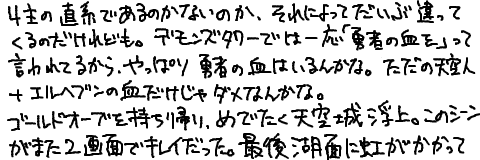 4主の直系であるのかないのか、それによってだいぶ違って
くるのだけれども。デモンズタワーでは一応「勇者の血を」って
言われてるから、やっぱり勇者の血はいるんかな。ただの天空人
+エルヘブンの血だけじゃダメなんかな。
ゴールドオーブを持ち帰り、めでたく天空城浮上。このシーン
がまた2画面でキレイだった。最後湖面に虹がかかって